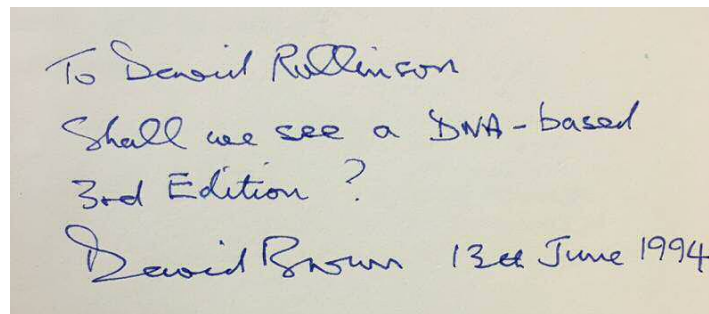 To David Rollinson
Shall we see a DNA-based
3rd Edition?
David Brown 13th June 1994